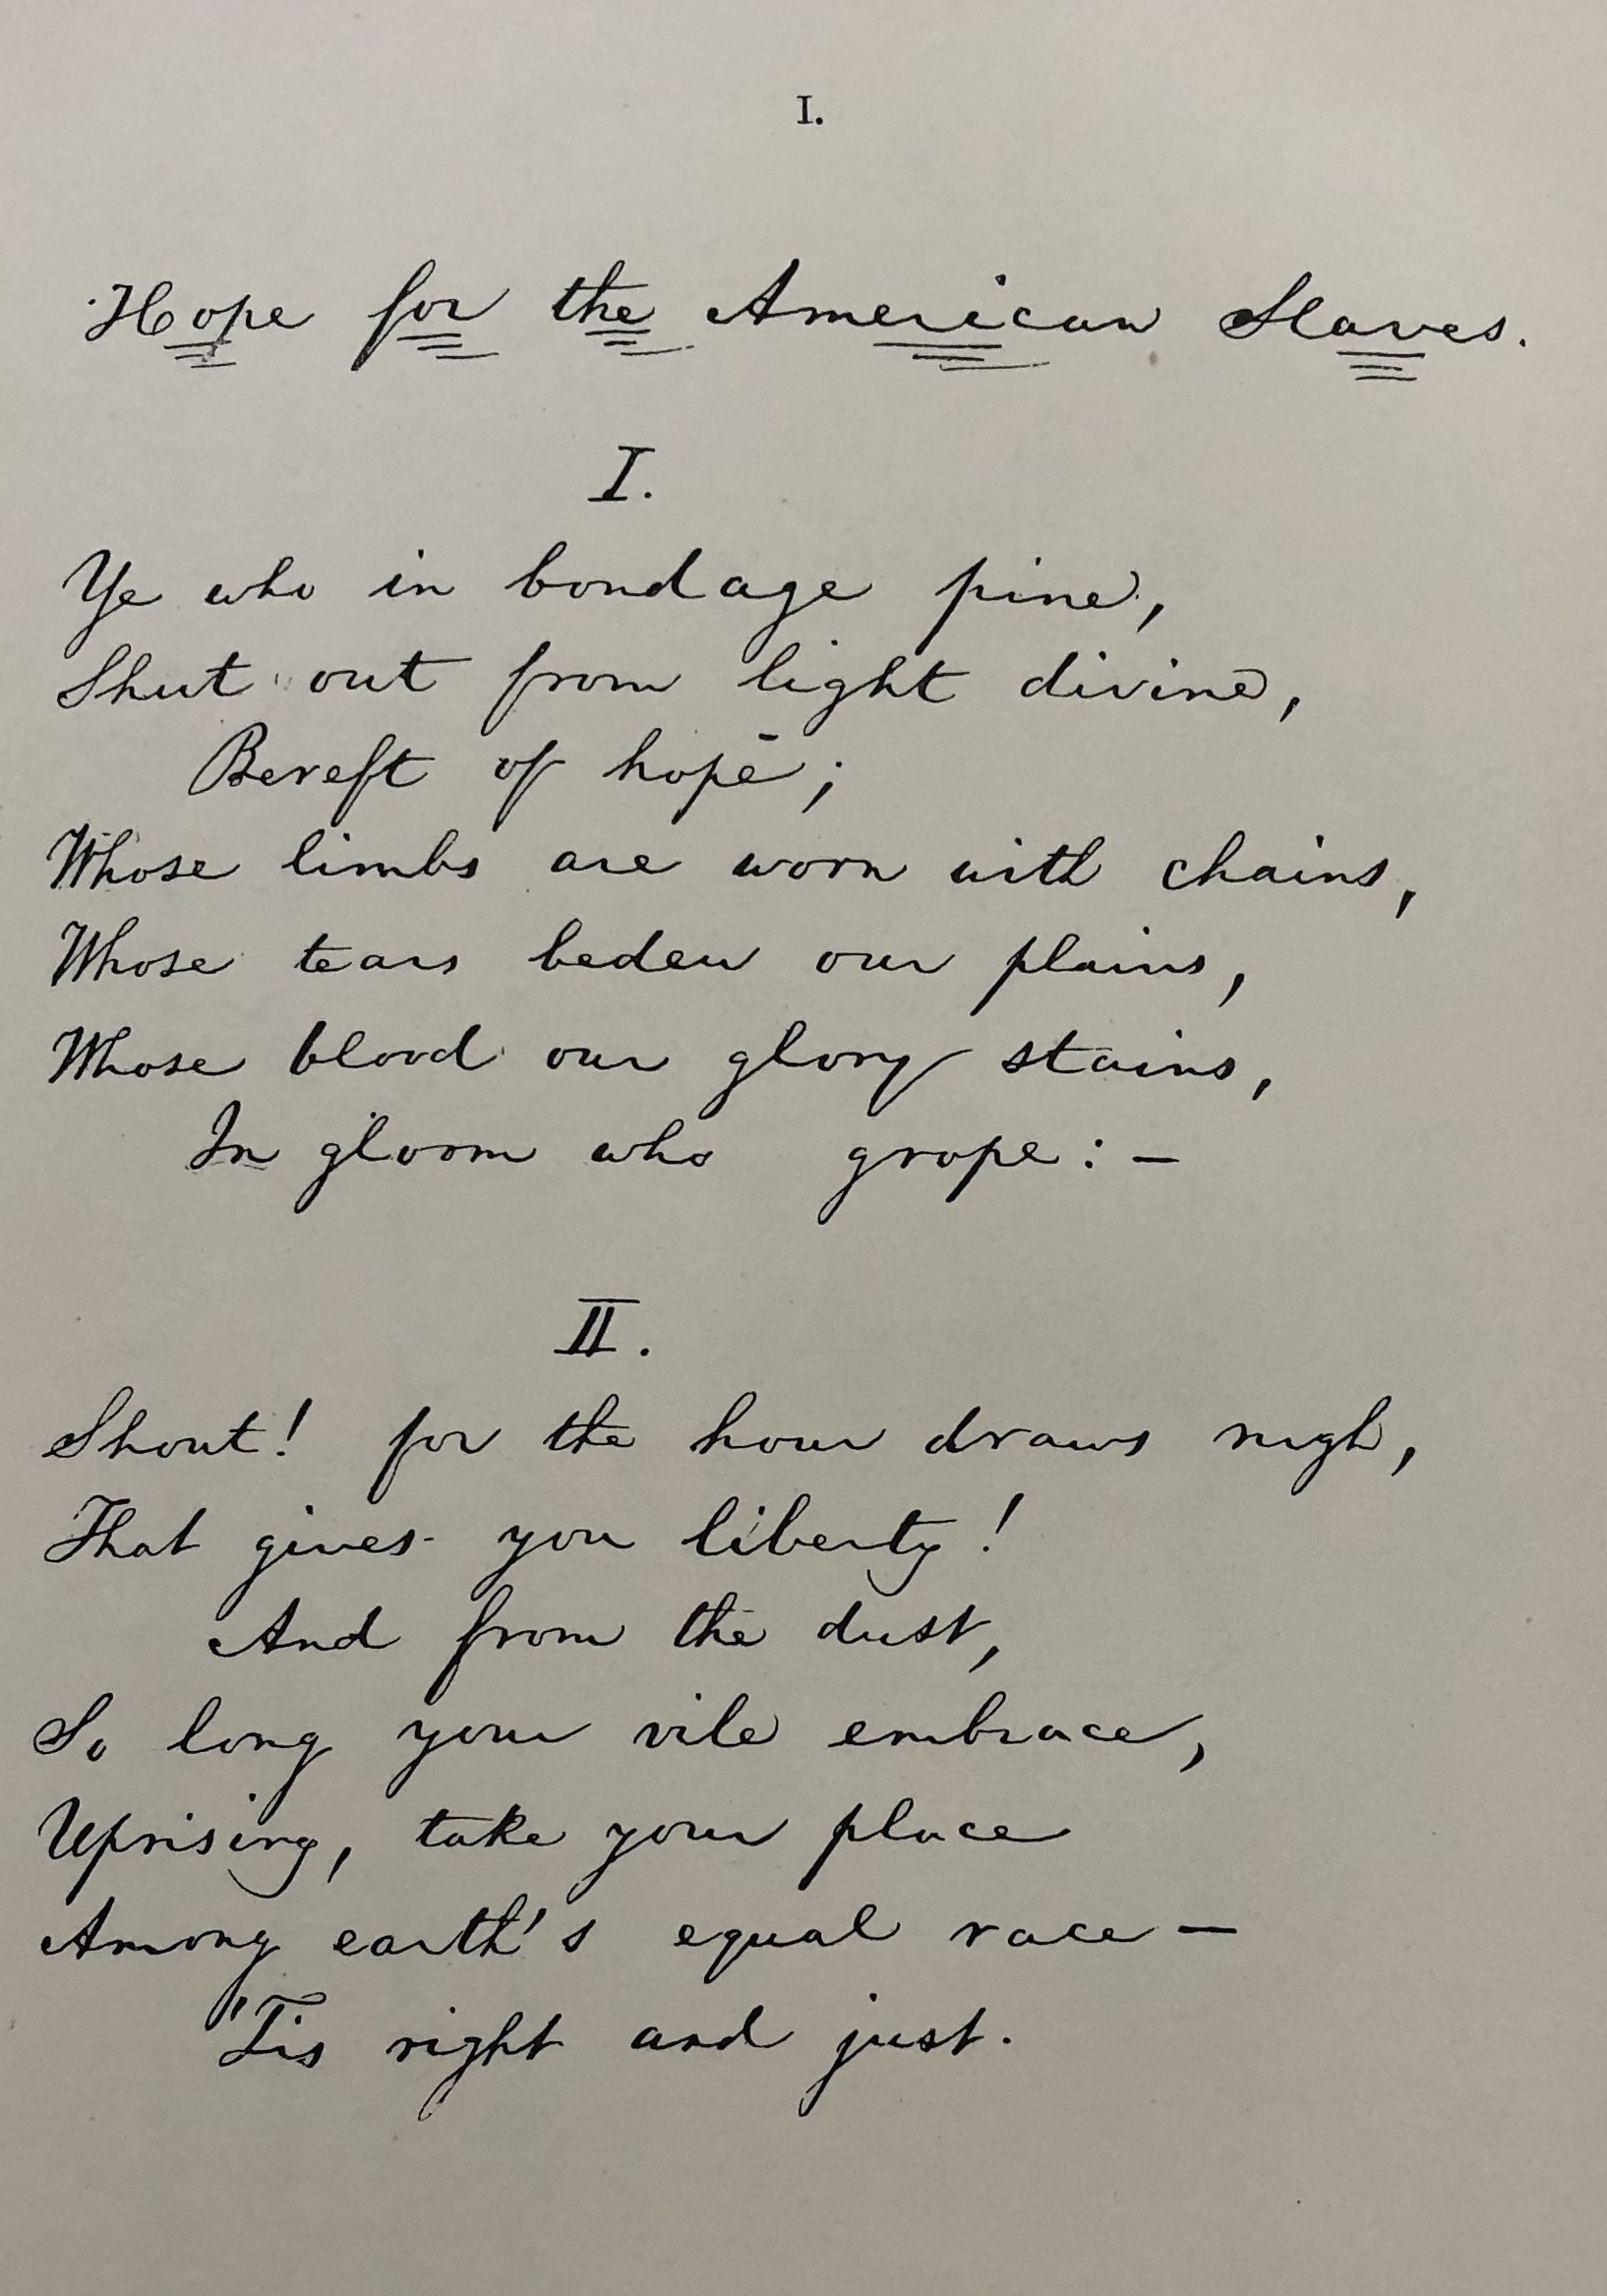 I.
Hope for the American Slaves.
I.
Ye who in bondage pine,
Shut out from light divine,
Bereft of hope;
Whose limbs are worn with chains,
Whose tears bedew our plains,
Whose blood our glory stains,
In gloom who grope:—
II.
Shout! for the hour draws nigh,
That gives you liberty!
And from the dust,
So long your vile embrace,
Uprising, take your place
Among earth's equal race—
'Tis right and just.